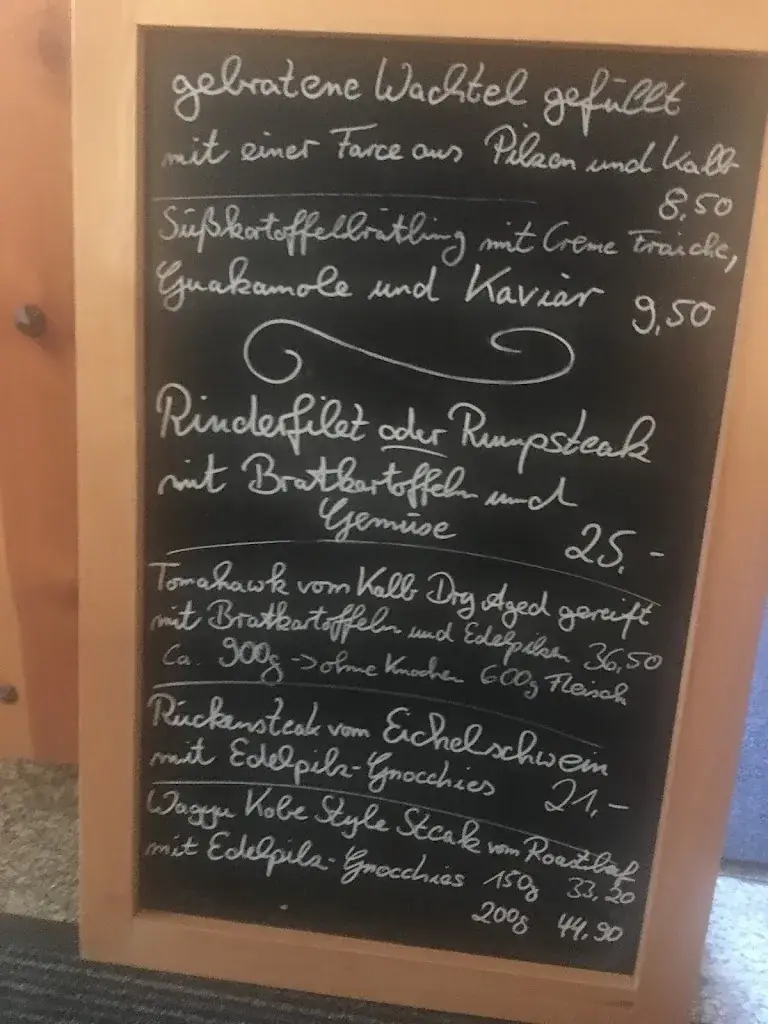 gebratene Wachtel gefüllt
mit einer Farce aus Pilzen und Kalb
8,50
Süßkartoffelbrätling mit Creme Fraiche,
Guakamole und Kaviar 9,50
Rinderfilet oder Rumpsteak
mit Bratkartoffeln und
Gemüse 25,-
Tomahawk vom Kalb Dry Aged gereift
mit Bratkartoffeln und Edelpilzen 36,50
Ca. 900g -> ohne Knochen 600g Fleisch
Rückensteak vom Eichelschwein
mit Edelpilz-Gnocchies 21,-
Wagyu Kobe Style Steak vom Roastbef
mit Edelpilz-Gnocchies 150g 33,20
200g 44,90